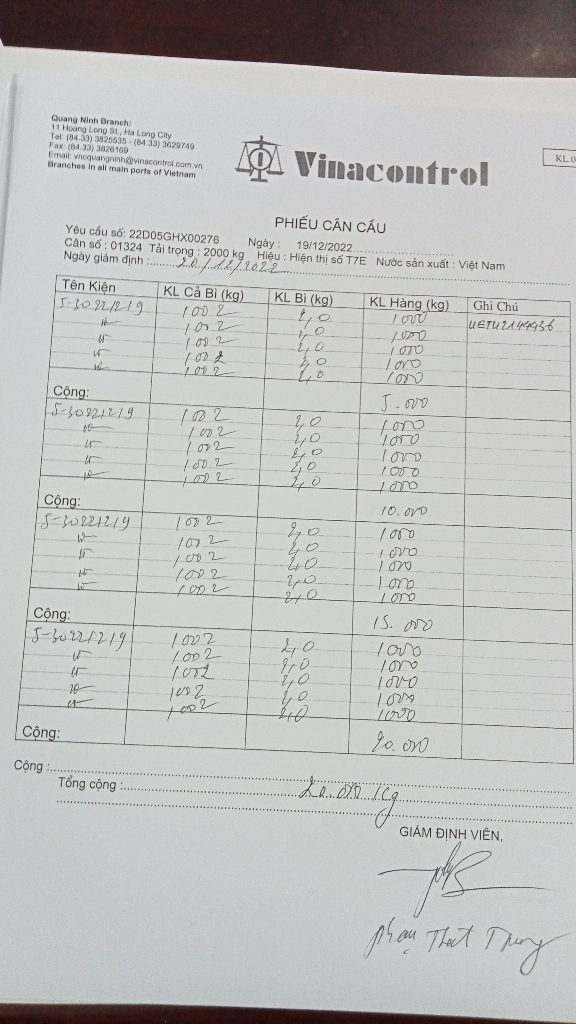 Quang Ninh Branch:
11 Hoang Long St., Ha Long City
Tel: (84.33) 3825535 - (84.33) 3629749
Fax: (84.33) 3826169
Email: vncquangninh@vinacontrol.com.vn
Branches in all main ports of Vietnam
Vinacontrol
KL.0
PHIẾU CÂN CẦU
Yêu cầu số: 22D05GHX00276 Ngày : 19/12/2022
Cân số : 01324 Tải trọng : 2000 kg Hiệu : Hiện thị số T7E Nước sản xuất : Việt Nam
Ngày giám định : 20/12/2022
Tên Kiện KL Cả Bì (kg) KL Bì (kg) KL Hàng (kg) Ghi Chú
5-30221219 1002 2,0 1000
" 1002 2,0 1000
" 1002 2,0 1000
" 1002 2,0 1000
" 1002 2,0 1000
Cộng: 5.000
5-30221219 1002 2,0 1000
" 1002 2,0 1000
" 1002 2,0 1000
" 1002 2,0 1000
" 1002 2,0 1000
Cộng: 10.000
5-30221219 1002 2,0 1000
" 1002 2,0 1000
" 1002 2,0 1000
" 1002 2,0 1000
" 1002 2,0 1000
Cộng: 15.000
5-30221219 1002 2,0 1000
" 1002 2,0 1000
" 1002 2,0 1000
" 1002 2,0 1000
" 1002 2,0 1000
Cộng: 20.000
Cộng :
Tổng cộng : 20.000 kg
GIÁM ĐỊNH VIÊN,
Phạm Thất Trung